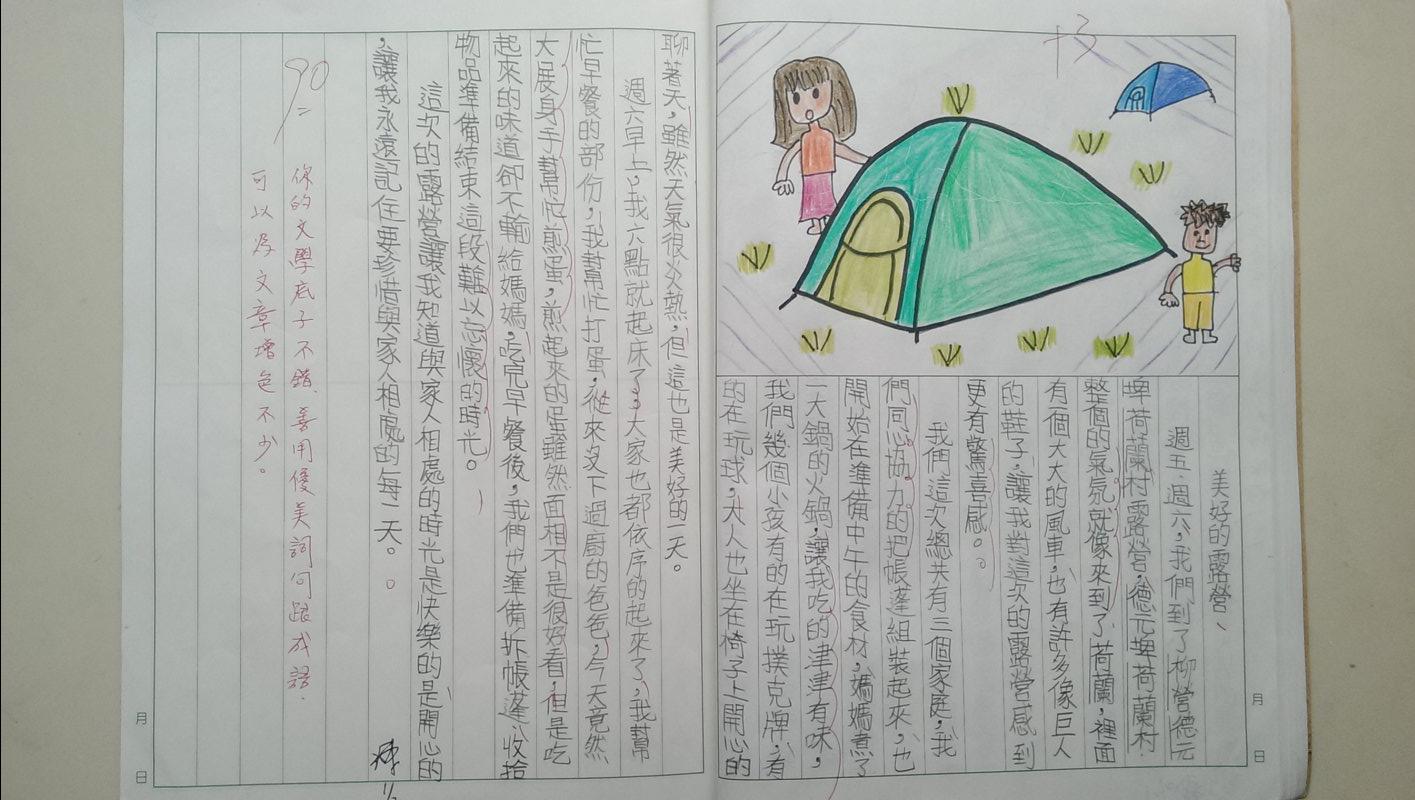 十3
美好的露營
週五、週六，我們到了柳營德元
埤荷蘭村露營，德元埤荷蘭村
整個的氣氛就像來到了荷蘭，裡面
有個大大的風車，也有許多像巨人
的鞋子，讓我對這次的露營感到
更有驚喜感。
我們這次總共有三個家庭，我
們同心協力的把帳蓬組裝起來，也
開始在準備中午的食材，媽媽煮了
一大鍋的火鍋，讓我吃的津津有味，
我們幾個小孩有的在玩撲克牌，有
的在玩球，大人也坐在椅子上開心的
月
日
聊著天，雖然天氣很炎熱，但這也是美好的一天。
週六早上，我六點就起床了，大家也都依序的起來了，我幫
忙早餐的部份，我幫忙打蛋，從來沒下過廚的爸爸，今天竟然
大展身手幫忙煎蛋，煎起來的蛋雖然面相不是很好看，但是吃
起來的味道卻不輸給媽媽，吃完早餐後，我們也準備拆帳蓬、收拾
物品準備結束這段難以忘懷的時光。
這次的露營讓我知道與家人相處的時光是快樂的、是開心的
，讓我永遠記住要珍惜與家人相處的每一天。
90
你的文學底子不錯，善用優美詞句跟成語，
可以為文章增色不少。
月
日